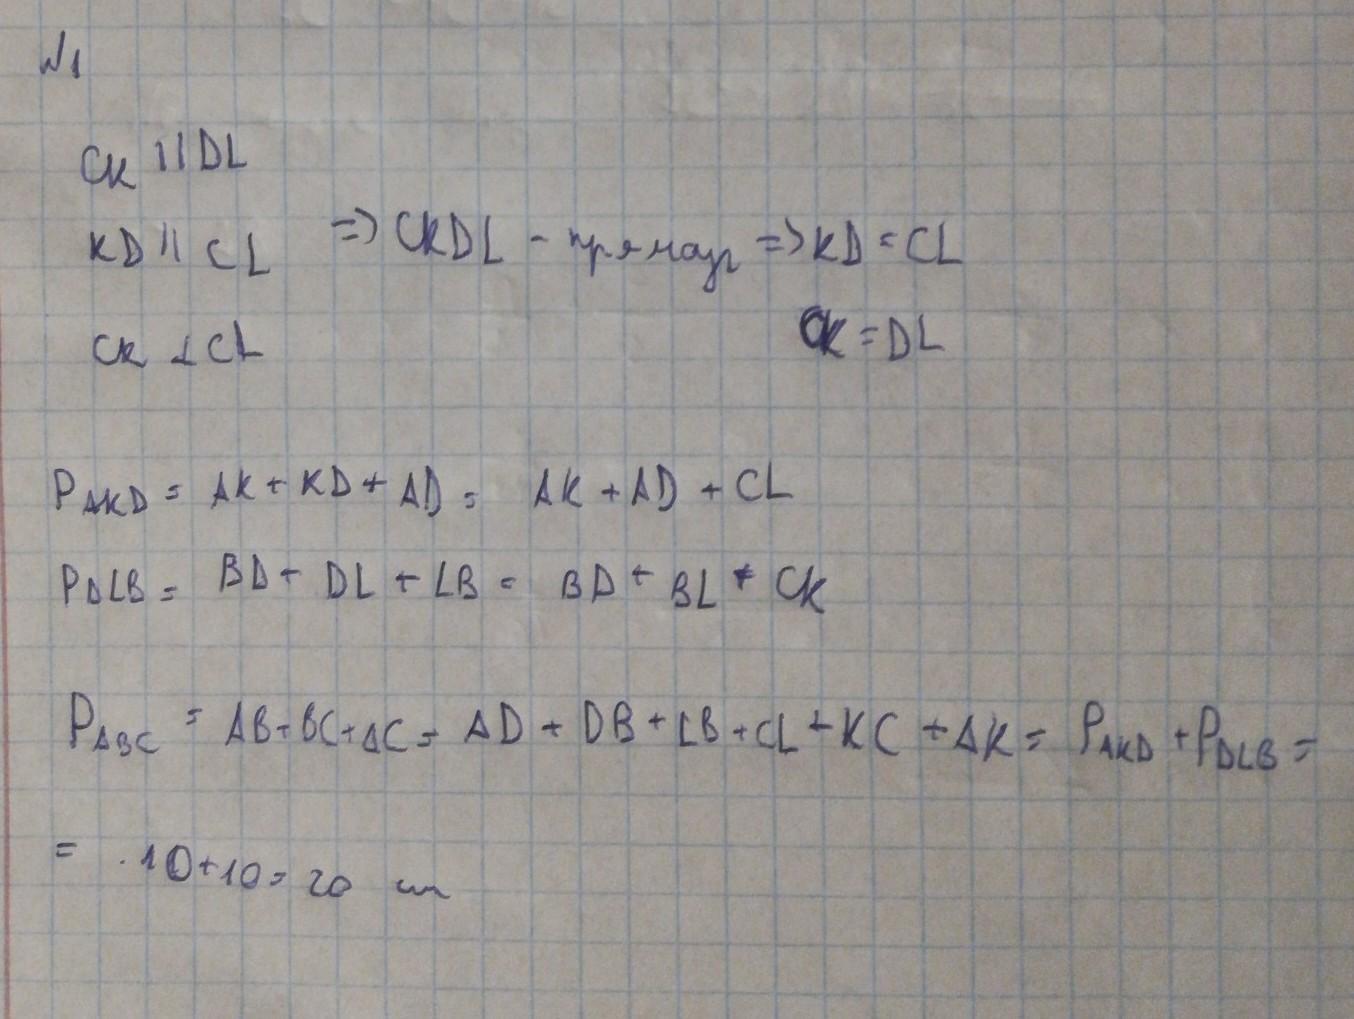 №1
CK || DL
KD || CL => CKDL - прямоуг => KD = CL
CK ⊥ CL
CK = DL
P AKD = AK + KD + AD = AK + AD + CL
P DLB = BD + DL + LB = BD + BL + CK
P ABC = AB + BC + AC = AD + DB + LB + CL + KC + AK = P AKD + P DLB =
= 10 + 10 = 20 см